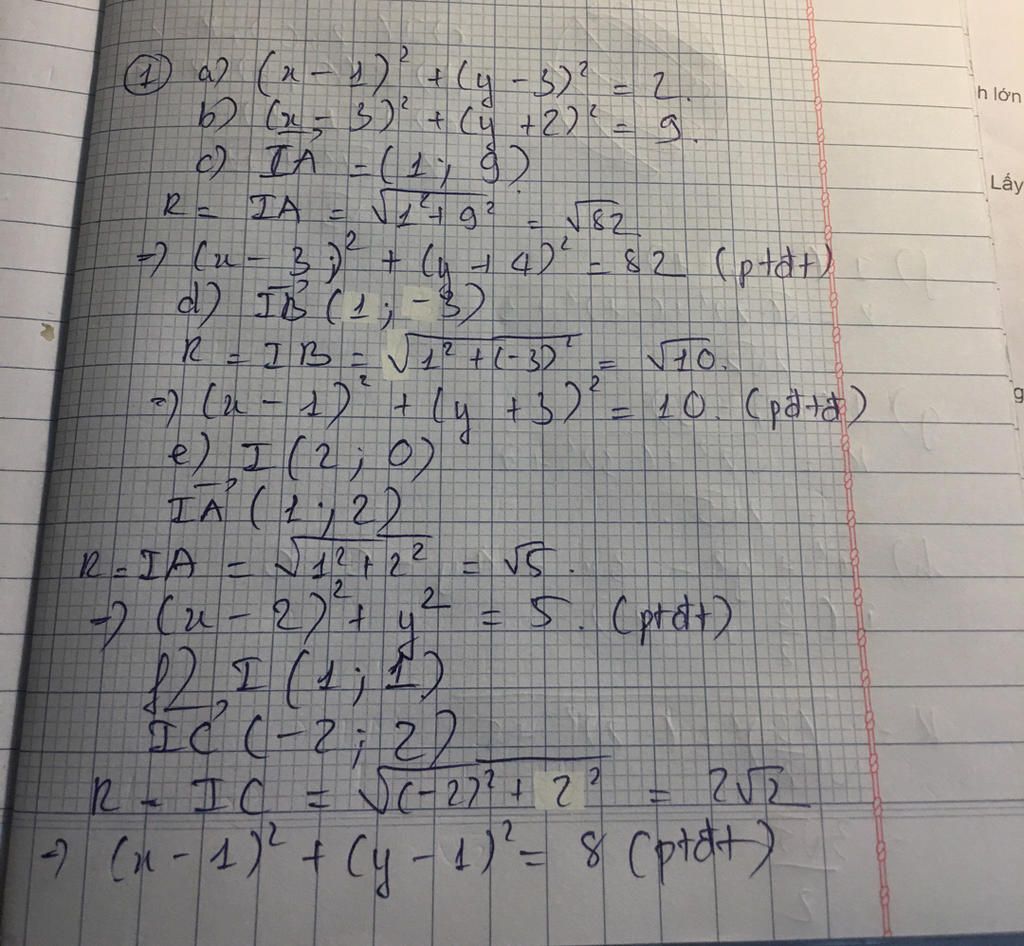 ① a) (x - 1)² + (y - 3)² = 2.
b) (x - 3)² + (y + 2)² = 9.
c) →IA = (1; 9)
R = IA = √(1² + 9²) = √82
=> (x - 3)² + (y + 4)² = 82 (ptđt)
d) →IB (1; -3)
R = IB = √(1² + (-3)²) = √10.
=> (x - 1)² + (y + 3)² = 10. (pđtđ)
e) I (2; 0)
→IA (1; 2)
R = IA = √(1² + 2²) = √5.
=> (x - 2)² + y² = 5. (ptđt)
f) I (1; 1)
→IC (-2; 2)
R = IC = √((-2)² + 2²) = 2√2
=> (x - 1)² + (y - 1)² = 8 (ptđt)
h lớn
Lấy
g